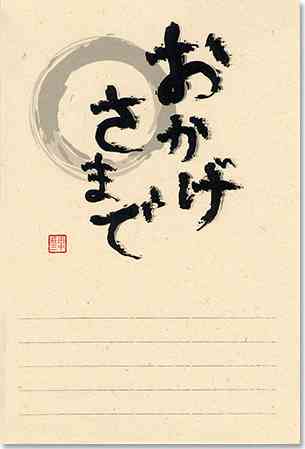 おかげ
さまで